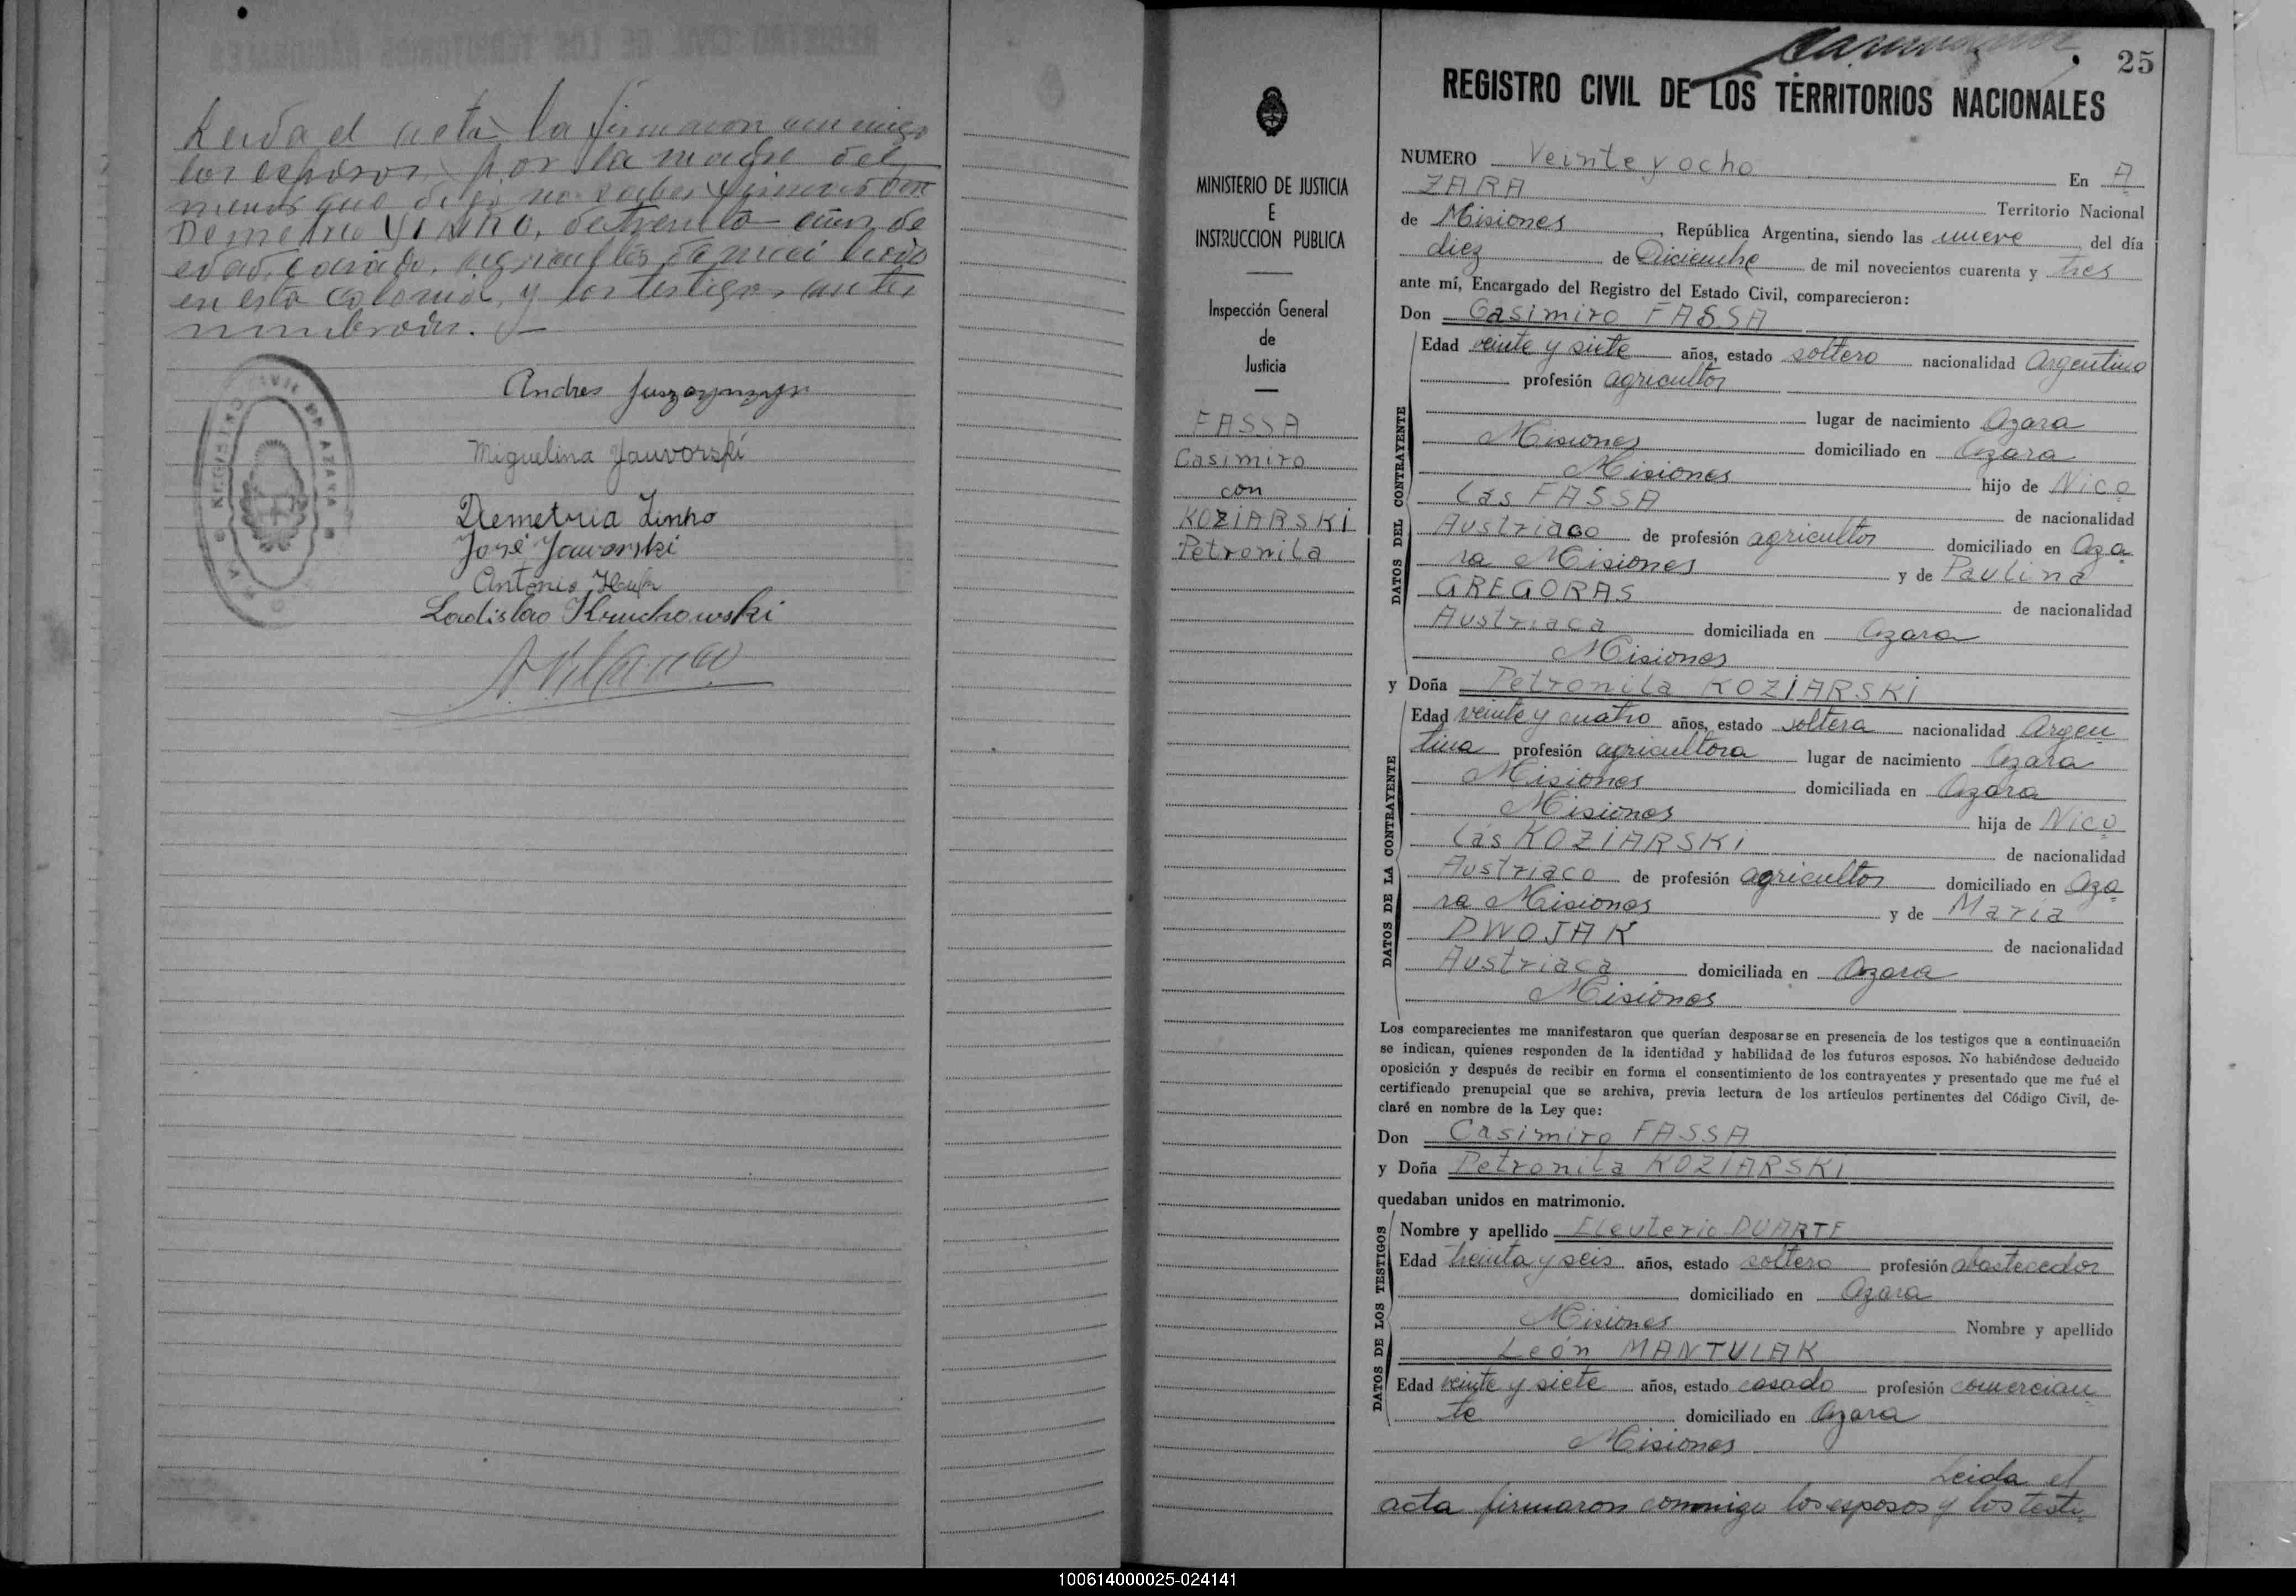 Leida el acta la firmaron conmigo
los esposos, por la madre del
menor que dijo no saber firmar don
Demetrio LINKO, de treinta años de
edad, casado, agricultor domiciliado
en esta colonia, y los testigos antes
nombrados.
REGISTRO CIVIL DE AZARA
Andres
Miguelina Yauvorski
Demetrio Linko
José Jawarski
Antonio
Ladislao Kruchowski
25
REGISTRO CIVIL DE LOS TERRITORIOS NACIONALES
MINISTERIO DE JUSTICIA
E
INSTRUCCION PUBLICA
Inspección General
de
Justicia
FASSA
Casimiro
con
KOZIARSKI
Petronila
NUMERO Veinte y ocho En A
ZARA Territorio Nacional
de Misiones, República Argentina, siendo las nueve del día
diez de Diciembre de mil novecientos cuarenta y tres
ante mí, Encargado del Registro del Estado Civil, comparecieron:
Don Casimiro FASSA
DATOS DEL CONTRAYENTE
Edad veinte y siete años, estado soltero nacionalidad Argentino
profesión agricultor
lugar de nacimiento Azara
Misiones domiciliado en Azara
Misiones hijo de Nico
lás FASSA de nacionalidad
Austriaco de profesión agricultor domiciliado en Aza
ra Misiones y de Paulina
GREGORAS de nacionalidad
Austriaca domiciliada en Azara
Misiones
y Doña Petronila KOZIARSKI
DATOS DE LA CONTRAYENTE
Edad veinte y cuatro años, estado soltera nacionalidad Argen
tina profesión agricultora lugar de nacimiento Azara
Misiones domiciliada en Azara
Misiones hija de Nico
lás KOZIARSKI de nacionalidad
Austriaco de profesión agricultor domiciliado en Aza
ra Misiones y de María
DWOJAK de nacionalidad
Austriaca domiciliada en Azara
Misiones
Los comparecientes me manifestaron que querían desposarse en presencia de los testigos que a continuación
se indican, quienes responden de la identidad y habilidad de los futuros esposos. No habiéndose deducido
oposición y después de recibir en forma el consentimiento de los contrayentes y presentado que me fué el
certificado prenupcial que se archiva, previa lectura de los artículos pertinentes del Código Civil, de-
claré en nombre de la Ley que:
Don Casimiro FASSA
y Doña Petronila KOZIARSKI
quedaban unidos en matrimonio.
DATOS DE LOS TESTIGOS
Nombre y apellido Eleuterio DUARTE
Edad treinta y seis años, estado soltero profesión abastecedor
domiciliado en Azara
Misiones Nombre y apellido
León MANTULAK
Edad veinte y siete años, estado casado profesión comercian
te domiciliado en Azara
Misiones
Leida el
acta firmaron conmigo los esposos y los testi
100614000025-024141